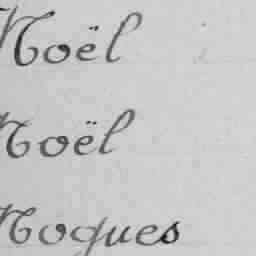 Noël
Noël
Nogues